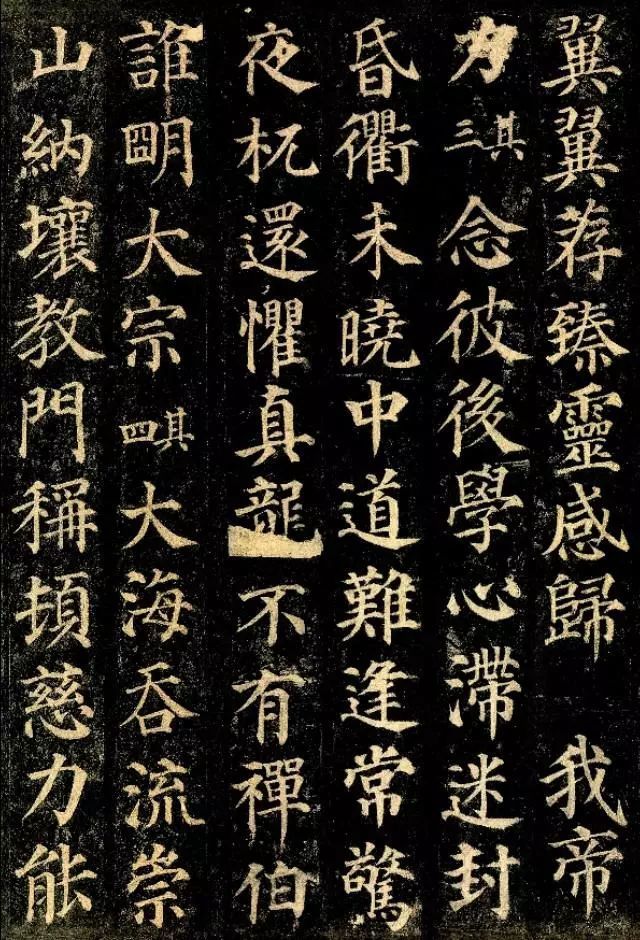 翼翼荐臻靈感歸 我帝
力其三念彼後學心滯迷封
昏衢未曉中道難逢常驚
夜杌還懼真龍不有禪伯
誰朙大宗其四大海吞流崇
山納壤教門稱頓慈力能